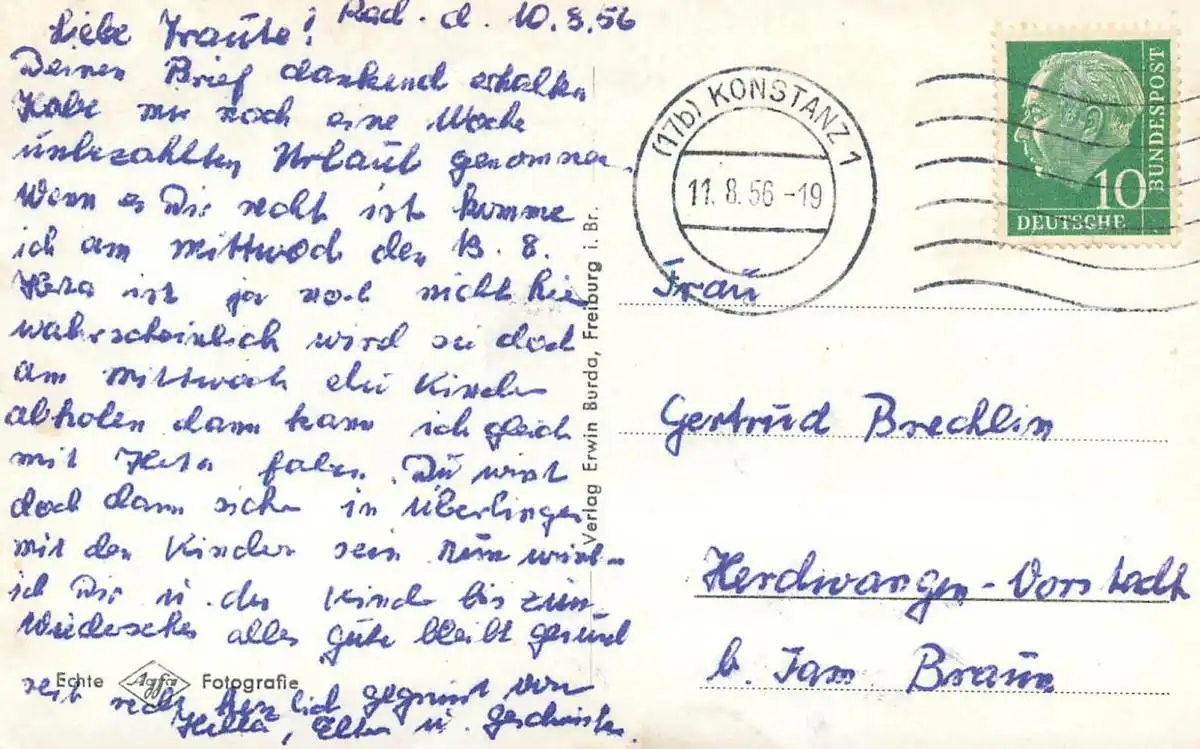 Rad. d. 10.8.56
Liebe Traute!
Deinen Brief dankend erhalten
Habe mir noch eine Woche
unbezahlten Urlaub genommen
Wenn es Dir recht ist komme
ich am Mittwoch den 13. 8.
Herta ist ja noch nicht hier
wahrscheinlich wird sie doch
am Mittwoch die Kinder
abholen dann kann ich gleich
mit Herta fahren. Du wirst
doch dann sicher in Überlingen
mit den Kinder sein Nun
ich Dir u. den Kinder bis zum
Wiedersehen alles gute bleibt gesund
seit recht herzlich gegrüsst von
Hella, Elter u. Geschwister.
Echte Agfa Fotografie
Verlag Erwin Burda, Freiburg i. Br.
(17b) KONSTANZ 1
11. 8. 56 -19
BUNDESPOST
10
DEUTSCHE
Frau
Gertrud Brechlin
Herdwangen-Vorstadt
b. Fam. Braun